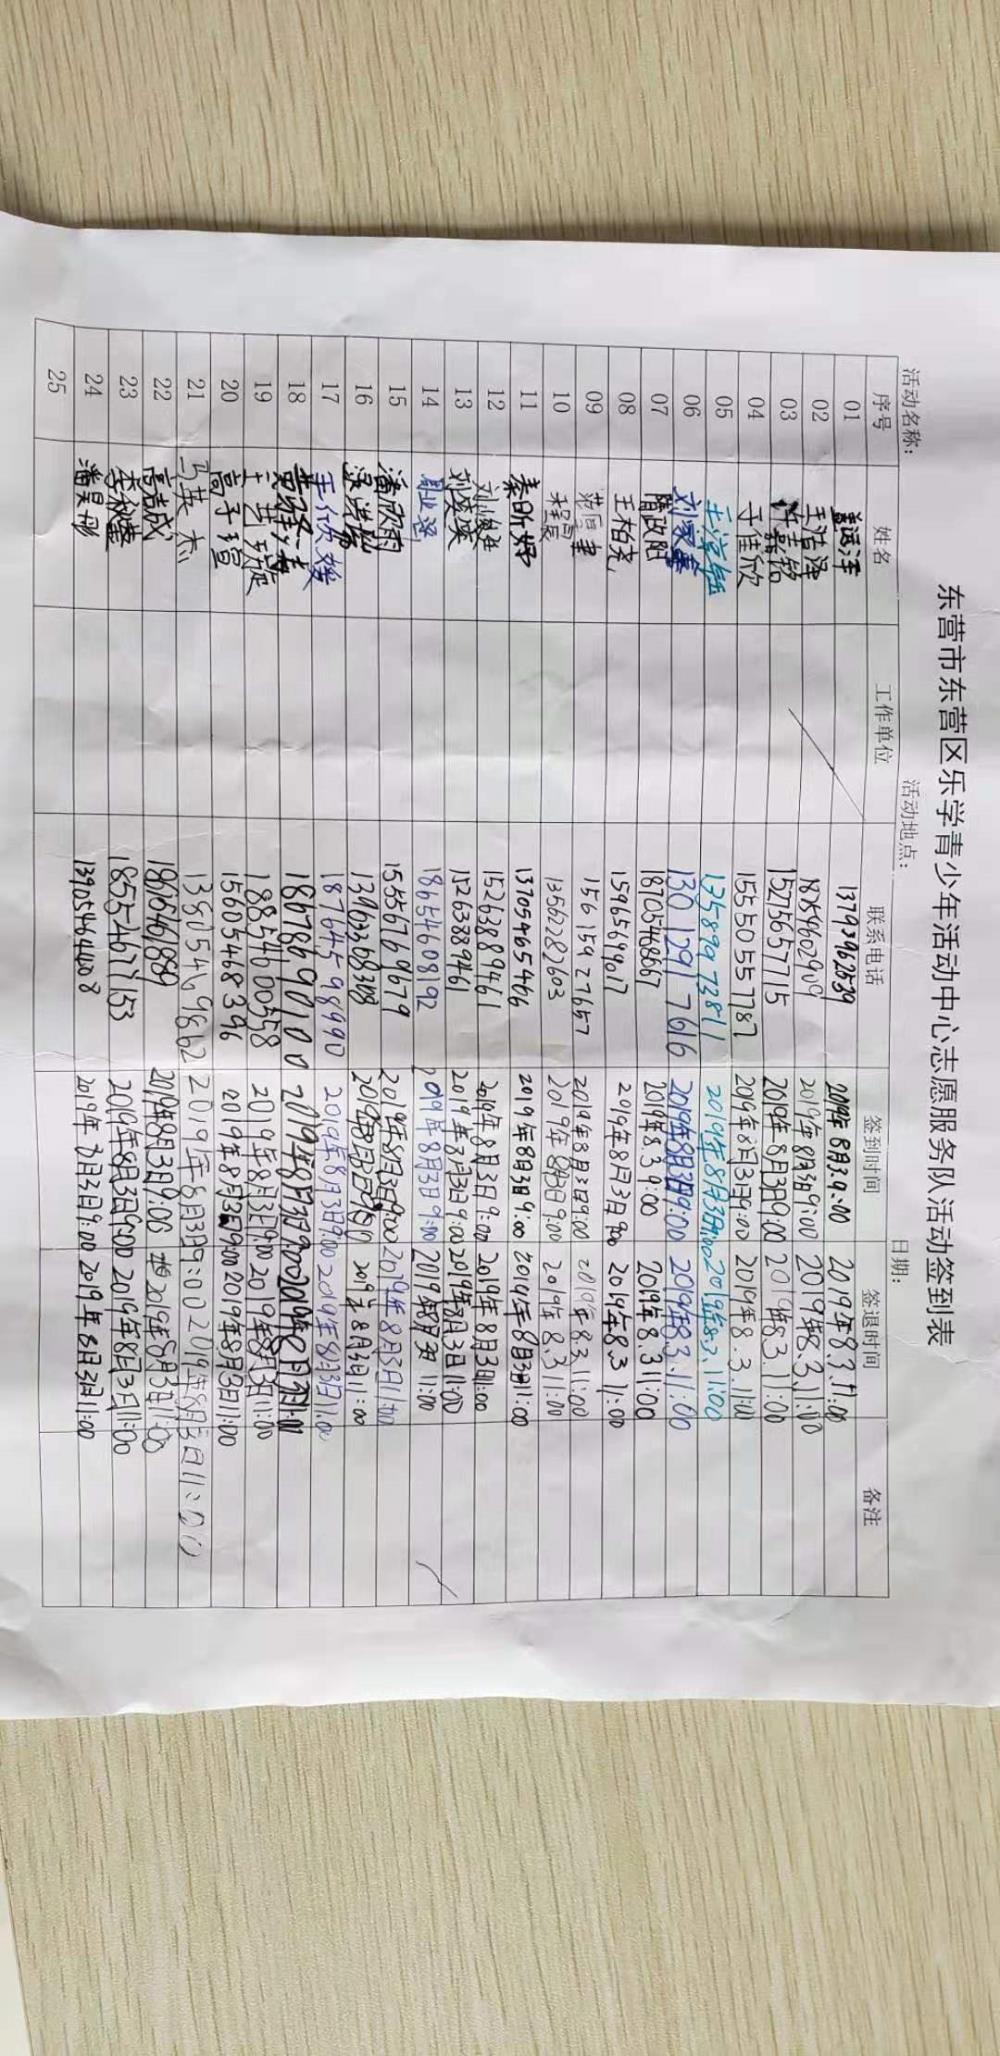 东营市东营区乐学青少年活动中心志愿服务队活动签到表
活动名称： 活动地点： 日期：
序号 姓名 工作单位 联系电话 签到时间 签退时间 备注
01 13793962639 2019年8月3 9:00 2019年8.3.11:00
02 王洁泽 18754602909 2019年8月3日9:00 2019年8.3.11:00
03 许嘉铭 15275657715 2019年8月3日9:00 2019年8.3.11:00
04 于佳欣 15550557787 2019年8月3日9:00 2019年8.3.11:00
05 王淳钰 13589973811 2019年8月3日9:00 2019年8.3.11:00
06 刘家 13012917616 2019年8月3日9:00 2019年8.3.11:00
07 隋政阳 18105468667 2019年8.3 9:00 2019年8.3 11:00
08 王柏尧 15965649017 2019年8月3日9:00 2019年8.3 11:00
09 15615927657 2019年8月3日9:00 2019年8.3 11:00
10 程晨 13562282603 2019年8月3日9:00 2019年8.3 11:00
11 秦昕妤 13705465406 2019年8月3日9:00 2019年8月3日11:00
12 15263889461 2019年8月3日9:00 2019年8月3日11:00
13 刘焕瑛 15263889461 2019年8月3日9:00 2019年8月3日11:00
14 18654608192 2019年8月3日9:00 2019年8月3日 11:00
15 潘欣雨 15556769679 2019年8月3日9:00 2019年8月3日11:00
16 13963368308 2019年8月3日9:00 2019年8月3日11:00
17 王欣媛 18764598990 2019年8月3日9:00 2019年8月3日11:00
18 18678690100 2019年8月3日9:00 2019年8月3日11:00
19 18854600558 2019年8月3日9:00 2019年8月3日11:00
20 高子瑄 15605468396 2019年8月3日9:00 2019年8月3日11:00
21 马英杰 13805469862 2019年8月3日9:00 2019年8月3日11:00
22 高志成 1866461889 2019年8月3日9:00 2019年8月3日11:00
23 18554677153 2019年8月3日9:00 2019年8月3日11:00
24 潘昊彤 13905464408 2019年8月3日9:00 2019年8月3日11:00
25